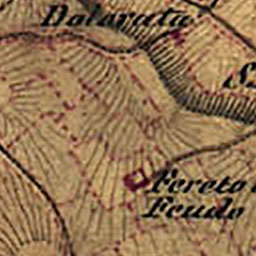 Dolorata
Fereto
Feudo